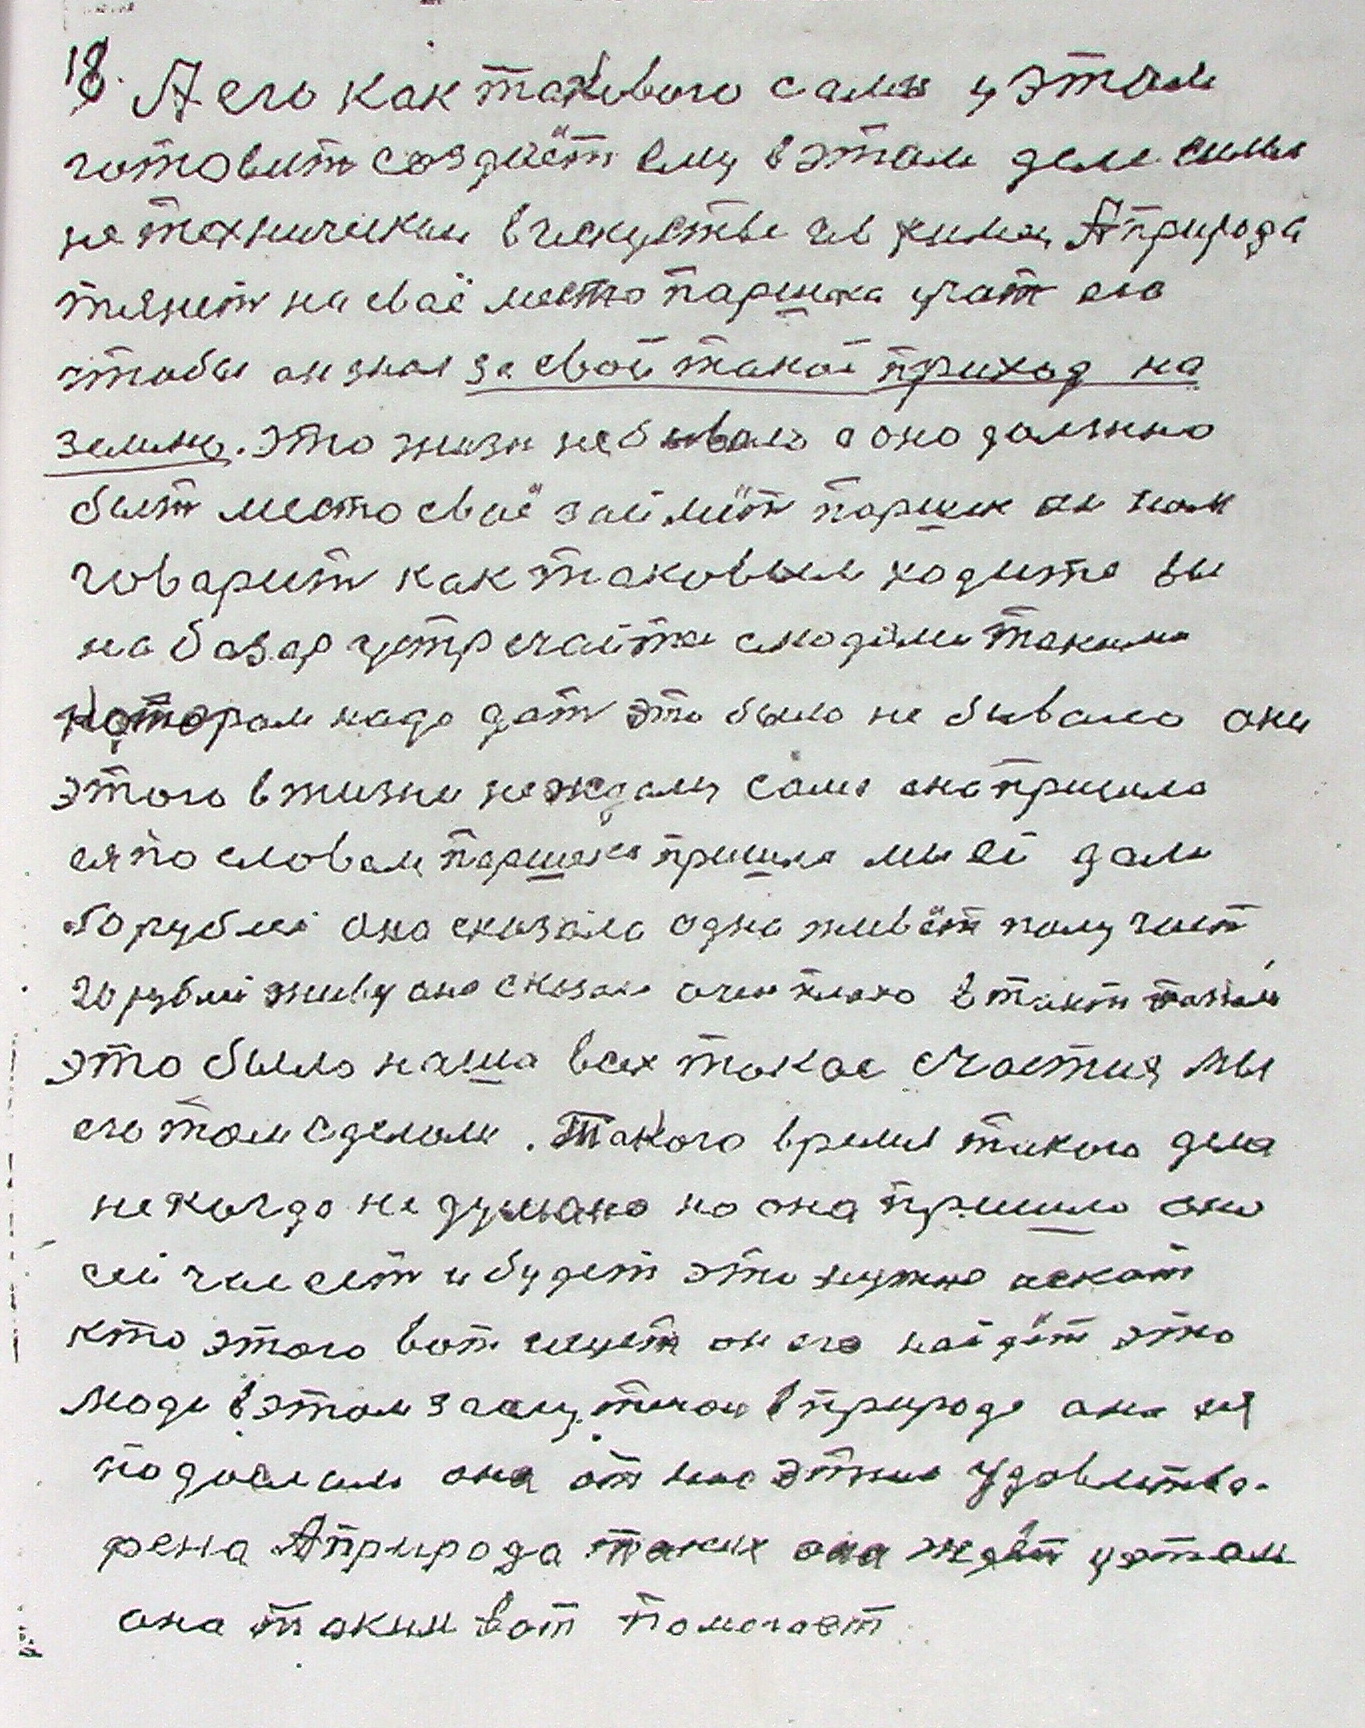 18. А его как такового сами у этом
готовит создаёт ему в этом деле силы
не технический в искустве и в химии А природа
тянет на сваё место паршека учат его
чтобы он знал за свой такой приход на
землю. это жизн небывало а оно должно
быт место сваё займёт паршек он нам
говарит как таковым ходите вы
на базар устречайтес слюдями такими
которам надо дат это было не бывало они
этого в жизни не ждали сама она пришла
я по словам паршека пришла мы ей дали
50 рублей она сказала одна живёт получает
20 рублей живу она сказала очен плохо в такт
это было наша всех такое счастия мы
его там сделали. Такого время такого дела
некогда не думано но она пришло оно
сейчас ест и будет это нужно искат
кто этого вот ищет он его найдёт это
люди в этом в природе они ея
она от нас этим удовлетво-
рена А природа таких она ждёт у этом
она таким вот помогает